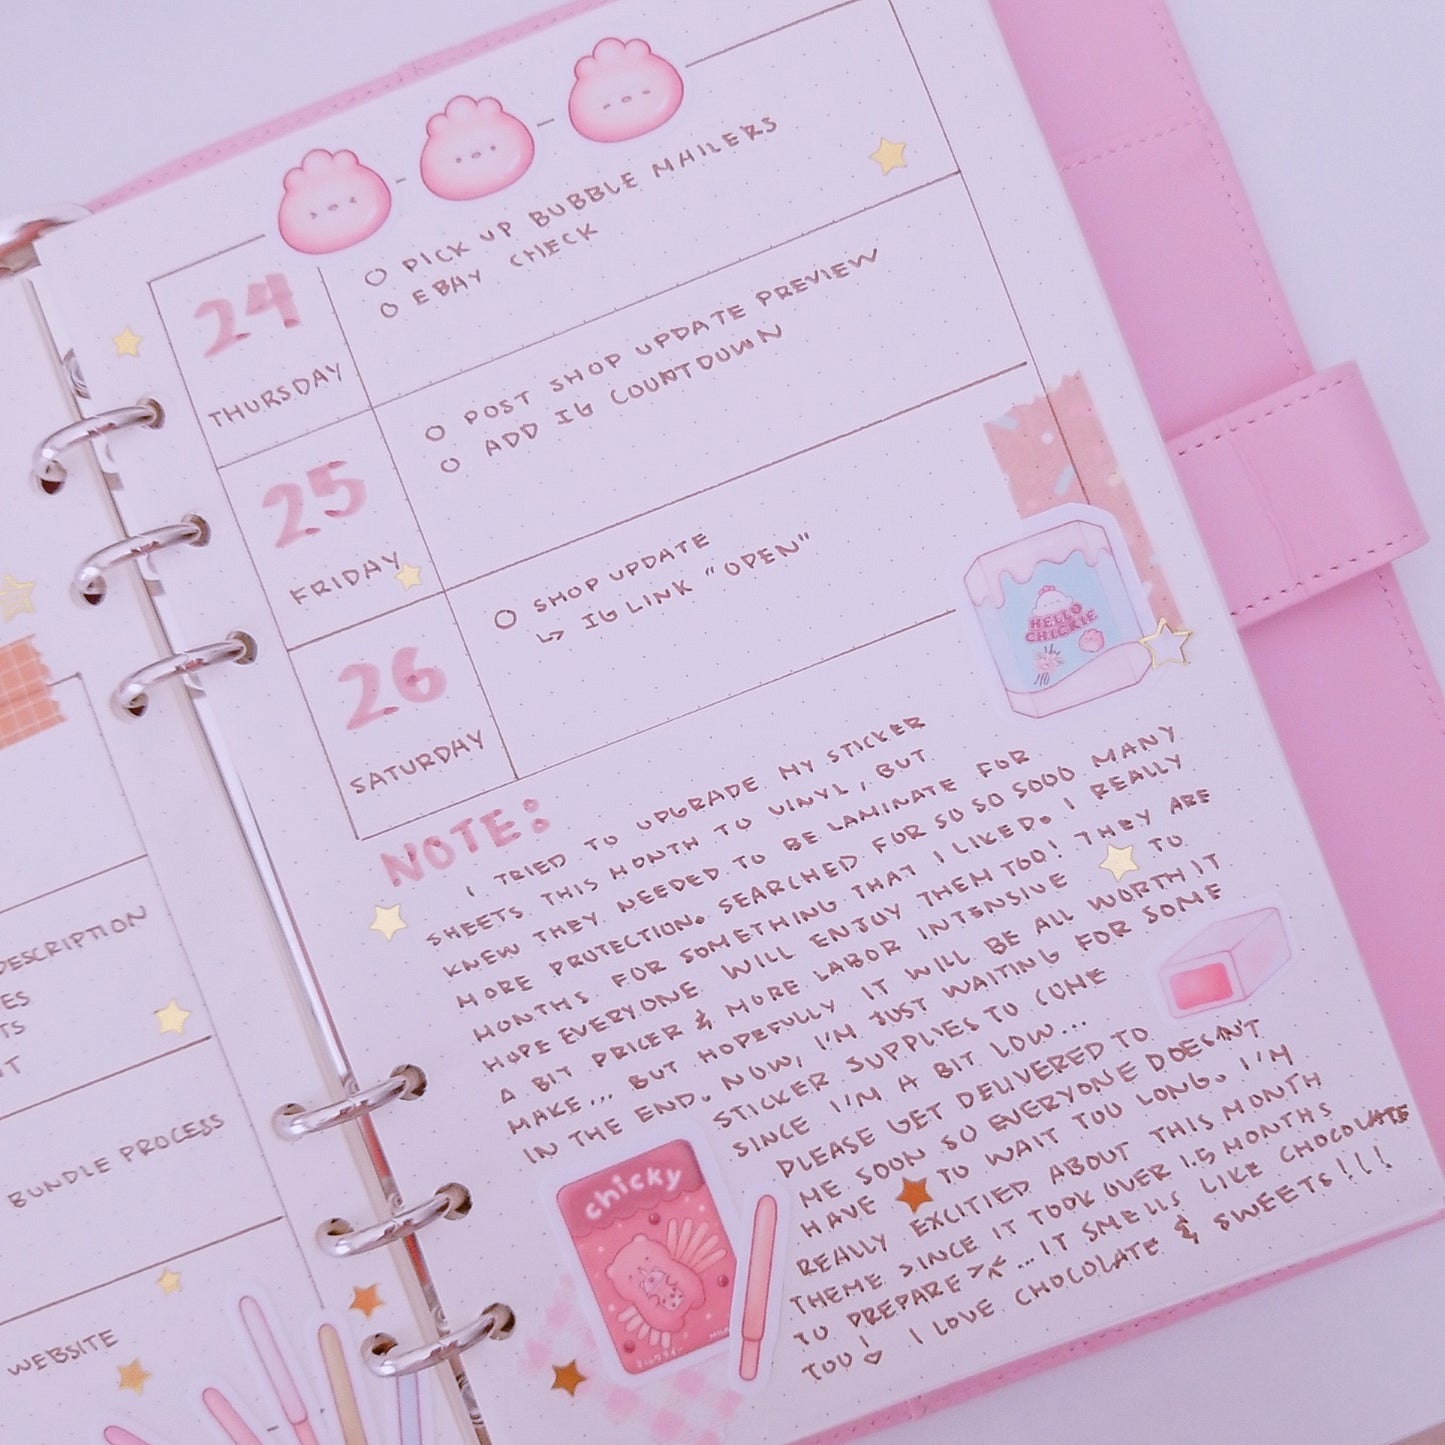 24
THURSDAY
O PICK UP BUBBLE MAILERS
O EBAY CHECK
25
FRIDAY
O POST SHOP UPDATE PREVIEW
O ADD IG COUNTDOWN
26
SATURDAY
O SHOP UPDATE
↳ IG LINK "OPEN"
HELLO
CHICKIE
NOTE:
I TRIED TO UPGRADE MY STICKER
SHEETS THIS MONTH TO VINYL, BUT
KNEW THEY NEEDED TO BE LAMINATE FOR
MORE PROTECTION. SEARCHED FOR SO SO SOOO MANY
MONTHS FOR SOMETHING THAT I LIKED. I REALLY
HOPE EVERYONE WILL ENJOY THEM TOO! THEY ARE
A BIT PRICER & MORE LABOR INTENSIVE TO
MAKE... BUT HOPEFULLY IT WILL BE ALL WORTH IT
IN THE END. NOW, I'M JUST WAITING FOR SOME
STICKER SUPPLIES TO COME
SINCE I'M A BIT LOW...
PLEASE GET DELIVERED TO
ME SOON SO EVERYONE DOESN'T
HAVE TO WAIT TOO LONG. I'M
REALLY EXCITIED ABOUT THIS MONTH
THEME SINCE IT TOOK OVER 1.5 MONTHS
TO PREPARE ><... IT SMELLS LIKE CHOCOLATE
TOO! ♡ I LOVE CHOCOLATE & SWEETS!!!
chicky
DESCRIPTION
ES
TS
T
BUNDLE PROCESS
WEBSITE